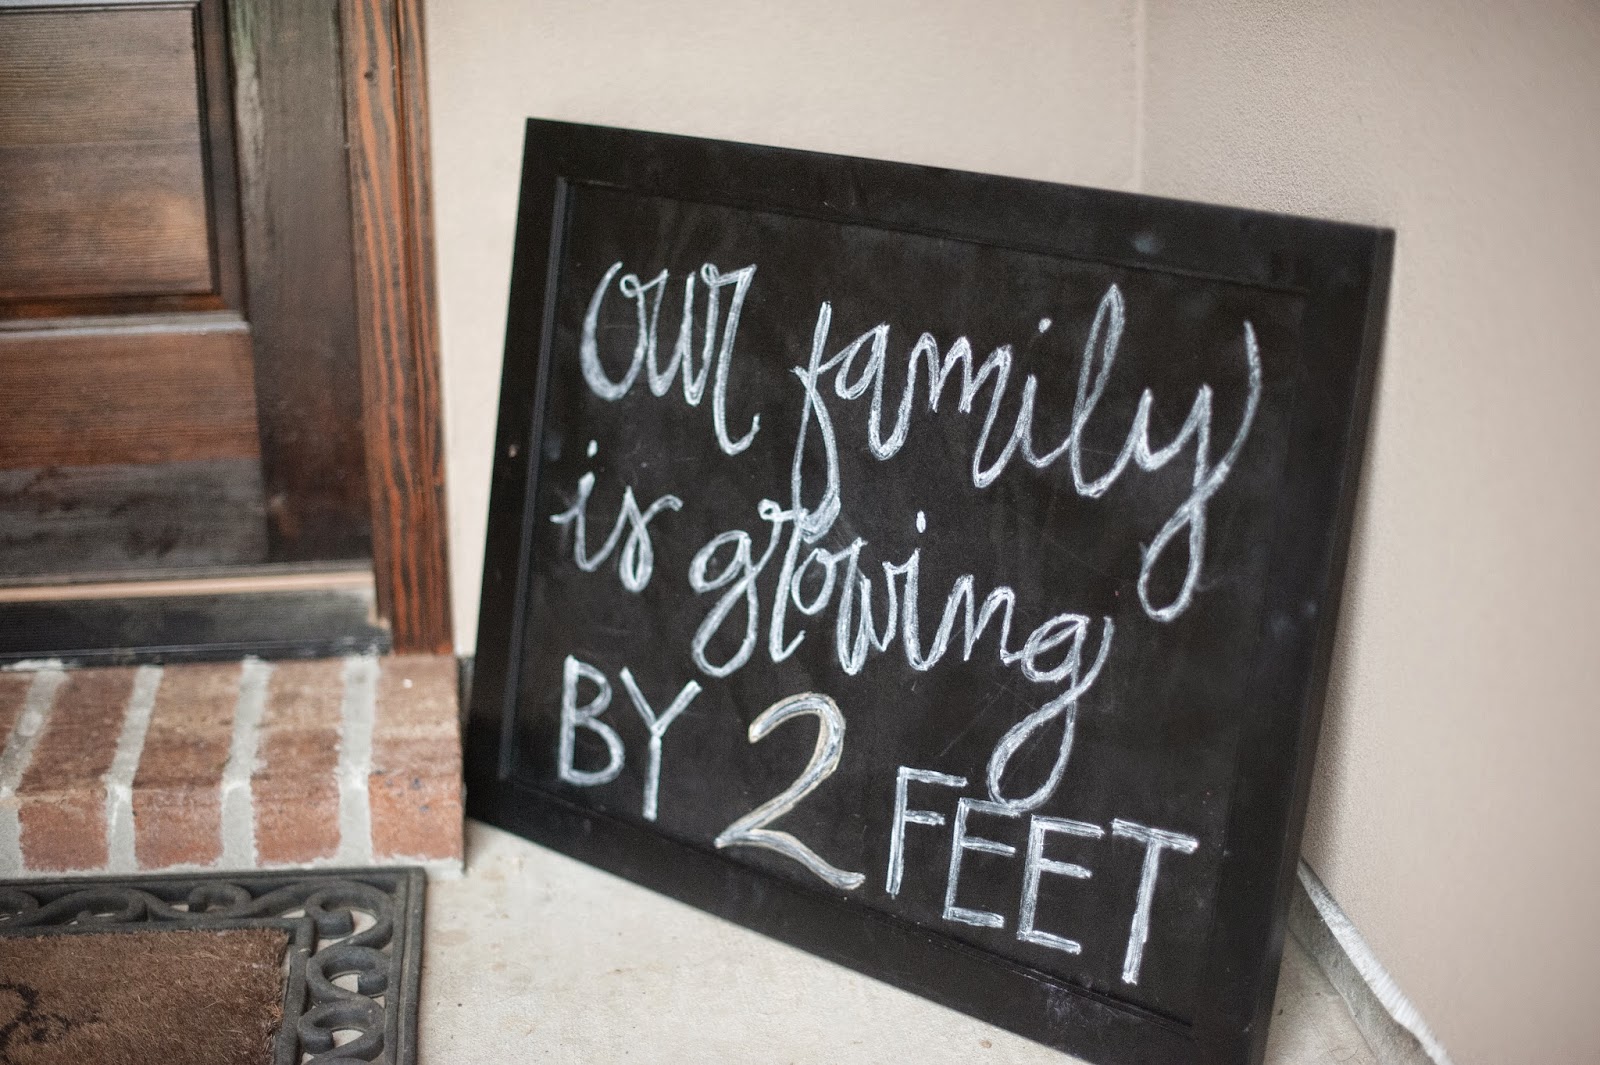 our family
is growing
BY 2 FEET